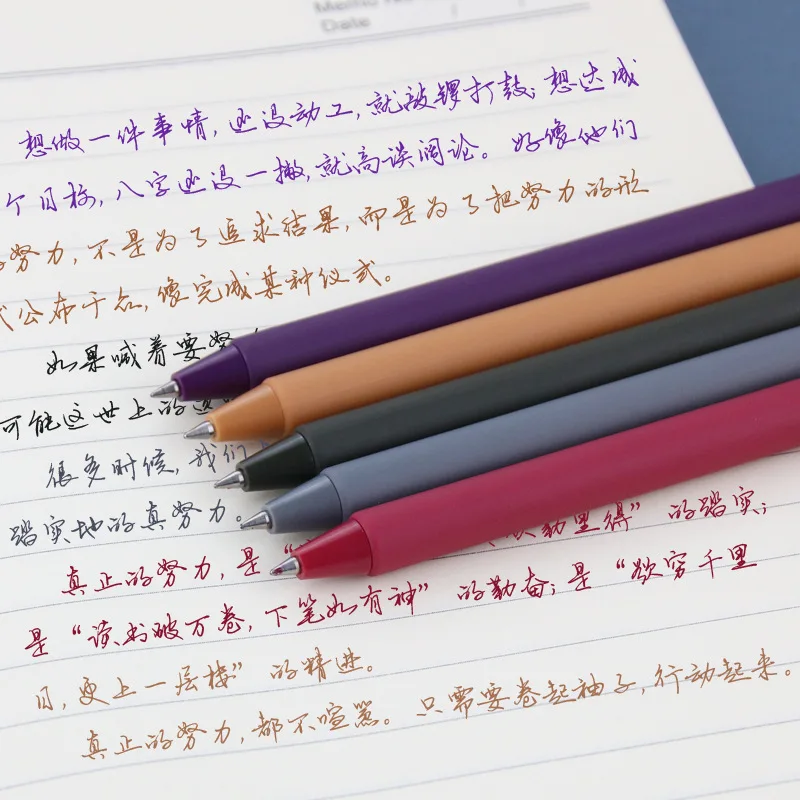 Memo No.
Date / /
想做一件事情，还没动工，就敲锣打鼓；想达成
个目标，八字还没一撇，就高谈阔论。好像他们
努力，不是为了追求结果，而是为了把努力的形
式公布于众，像完成某种仪式。
如果喊着要努
可能这世上的
很多时候，我们
踏实地的真努力。
真正的努力，是“ 勤里得”的踏实；
是“读书破万卷，下笔如有神”的勤奋；是“欲穷千里
目，更上一层楼”的精进。
真正的努力，都不喧嚣。只需要卷起袖子，行动起来。